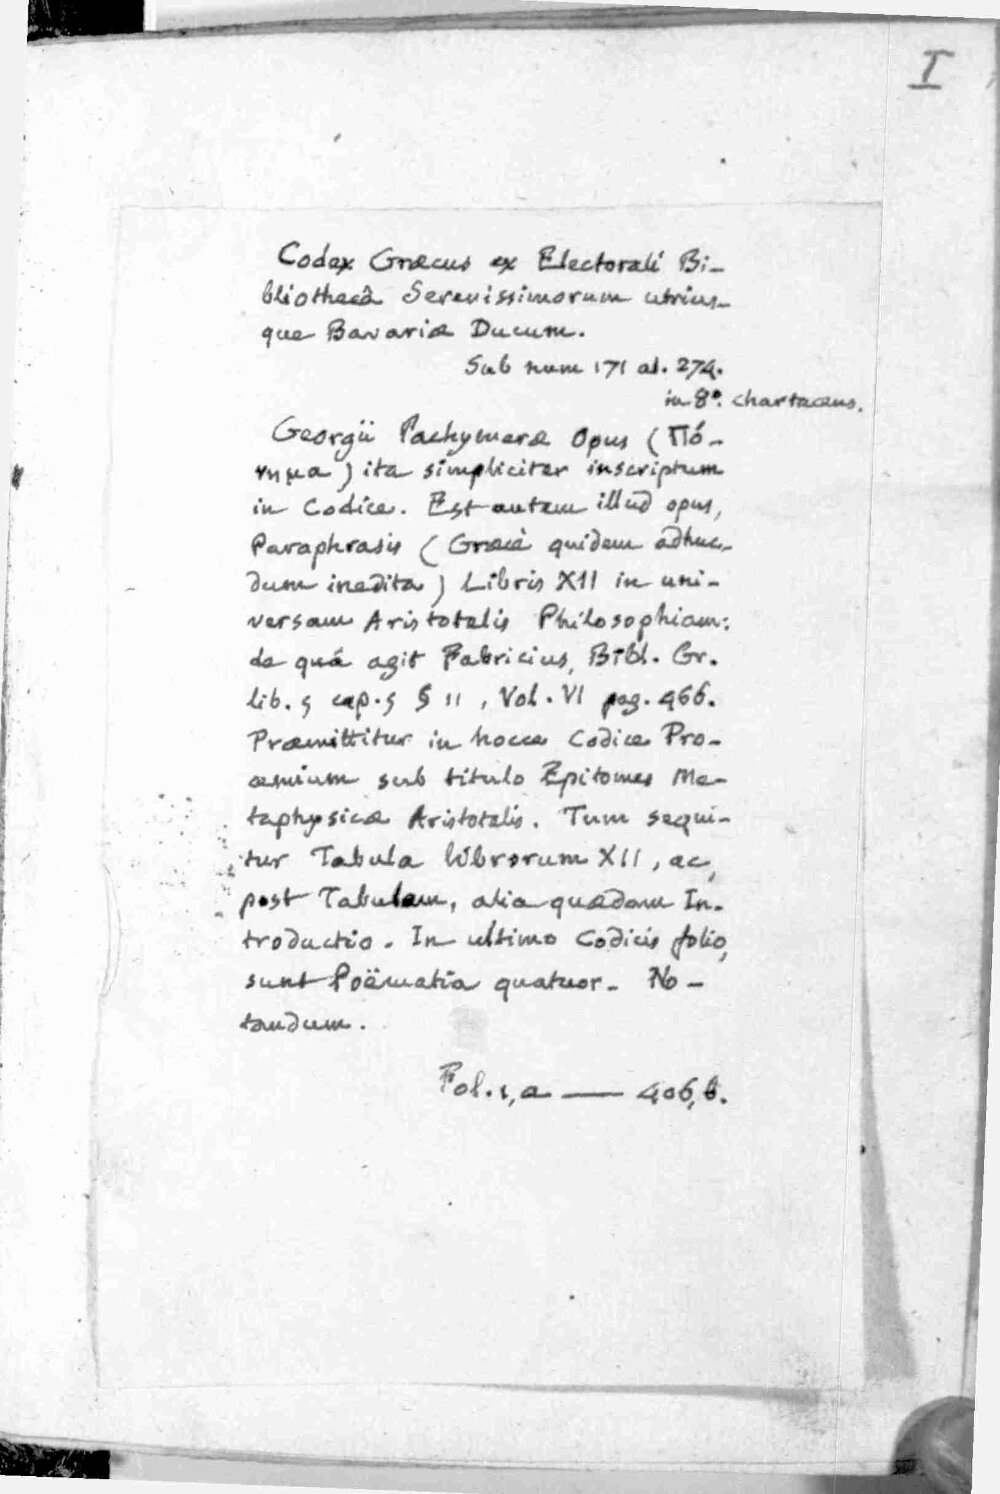 I
Codex Græcus ex Electorali Bi-
bliothecâ Serenissimorum utrius-
que Bavariæ Ducum.
Sub num 171 al. 274.
in 8º. chartaceus.
Georgii Pachymeræ Opus (Πό-
νημα) ita simpliciter inscriptum
in Codice. Est autem illud opus,
Paraphrasis (Græcè quidem adhuc-
dum inedita) Libris XII in uni-
versam Aristotelis Philosophiam:
de quâ agit Fabricius, Bibl. Gr.
lib. 5 cap. 5 § 11, Vol. VI pag. 466.
Præmittitur in hocce Codice Pro-
œmium sub titulo Epitomes Me-
taphysicæ Aristotelis. Tum sequi-
tur Tabula librorum XII, ac,
post Tabulam, alia quædam In-
troductio. In ultimo Codicis folio,
sunt Poëmatia quatuor. No-
tandum.
Fol. 1, a — 406, b.